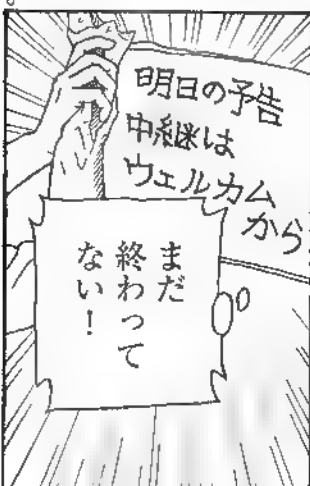 明日の予告
中継は
ウェルカム
から
まだ
終わって
ない！